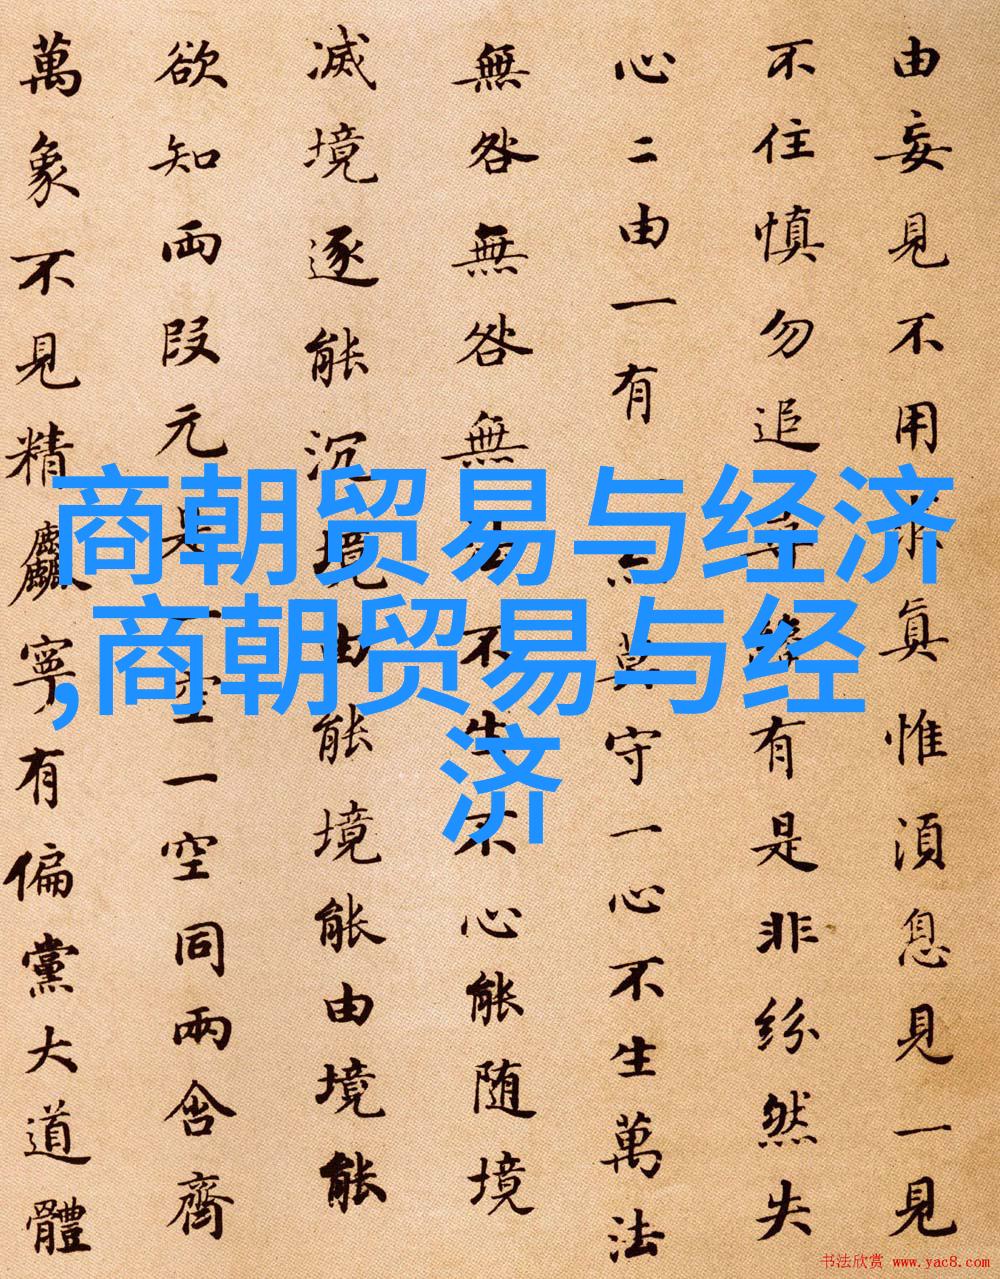 由妄見不用求真惟須息見一見
不住慎勿追尋纔有是非紛然失
心二由一有一亦莫守一心不生萬法
無咎無咎無法不生不心能随境
滅境逐能沉境由能境能由境能
欲知兩段元是一空一空同兩含齊
萬象不見精麤寧有偏黨大道體
商朝贸易与经济
,商朝贸易与经
济
书法欣赏 www.yac8.com